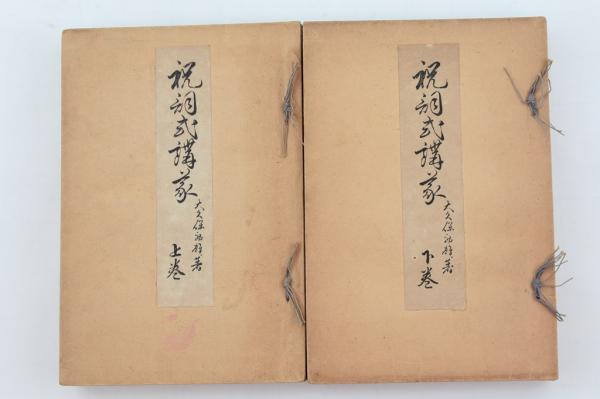 祝詞式講義
大久保初雄著
上巻
祝詞式講義
大久保初雄著
下巻